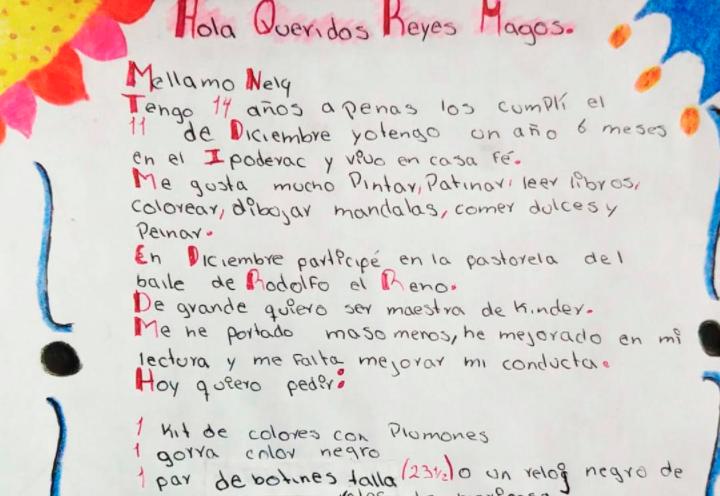 Hola Queridos Reyes Magos.
Mellamo Nely
Tengo 14 años apenas los cumplí el
11 de Diciembre yotengo un año 6 meses
en el Ipoderac y vivo en casa Fé.
Me gusta mucho Pintar, Patinar, leer libros,
colorear, dibujar mandalas, comer dulces y
Peinar.
En Diciembre participé en la pastorela del
baile de Rodolfo el Reno.
De grande quiero ser maestra de Kinder.
Me he portado maso menos, he mejorado en mi
lectura y me Falta mejorar mi conducta.
Hoy quiero pedir:
1 Kit de colores con Plumones
1 gorra color negro
1 par de botines talla (23½) o un reloj negro de